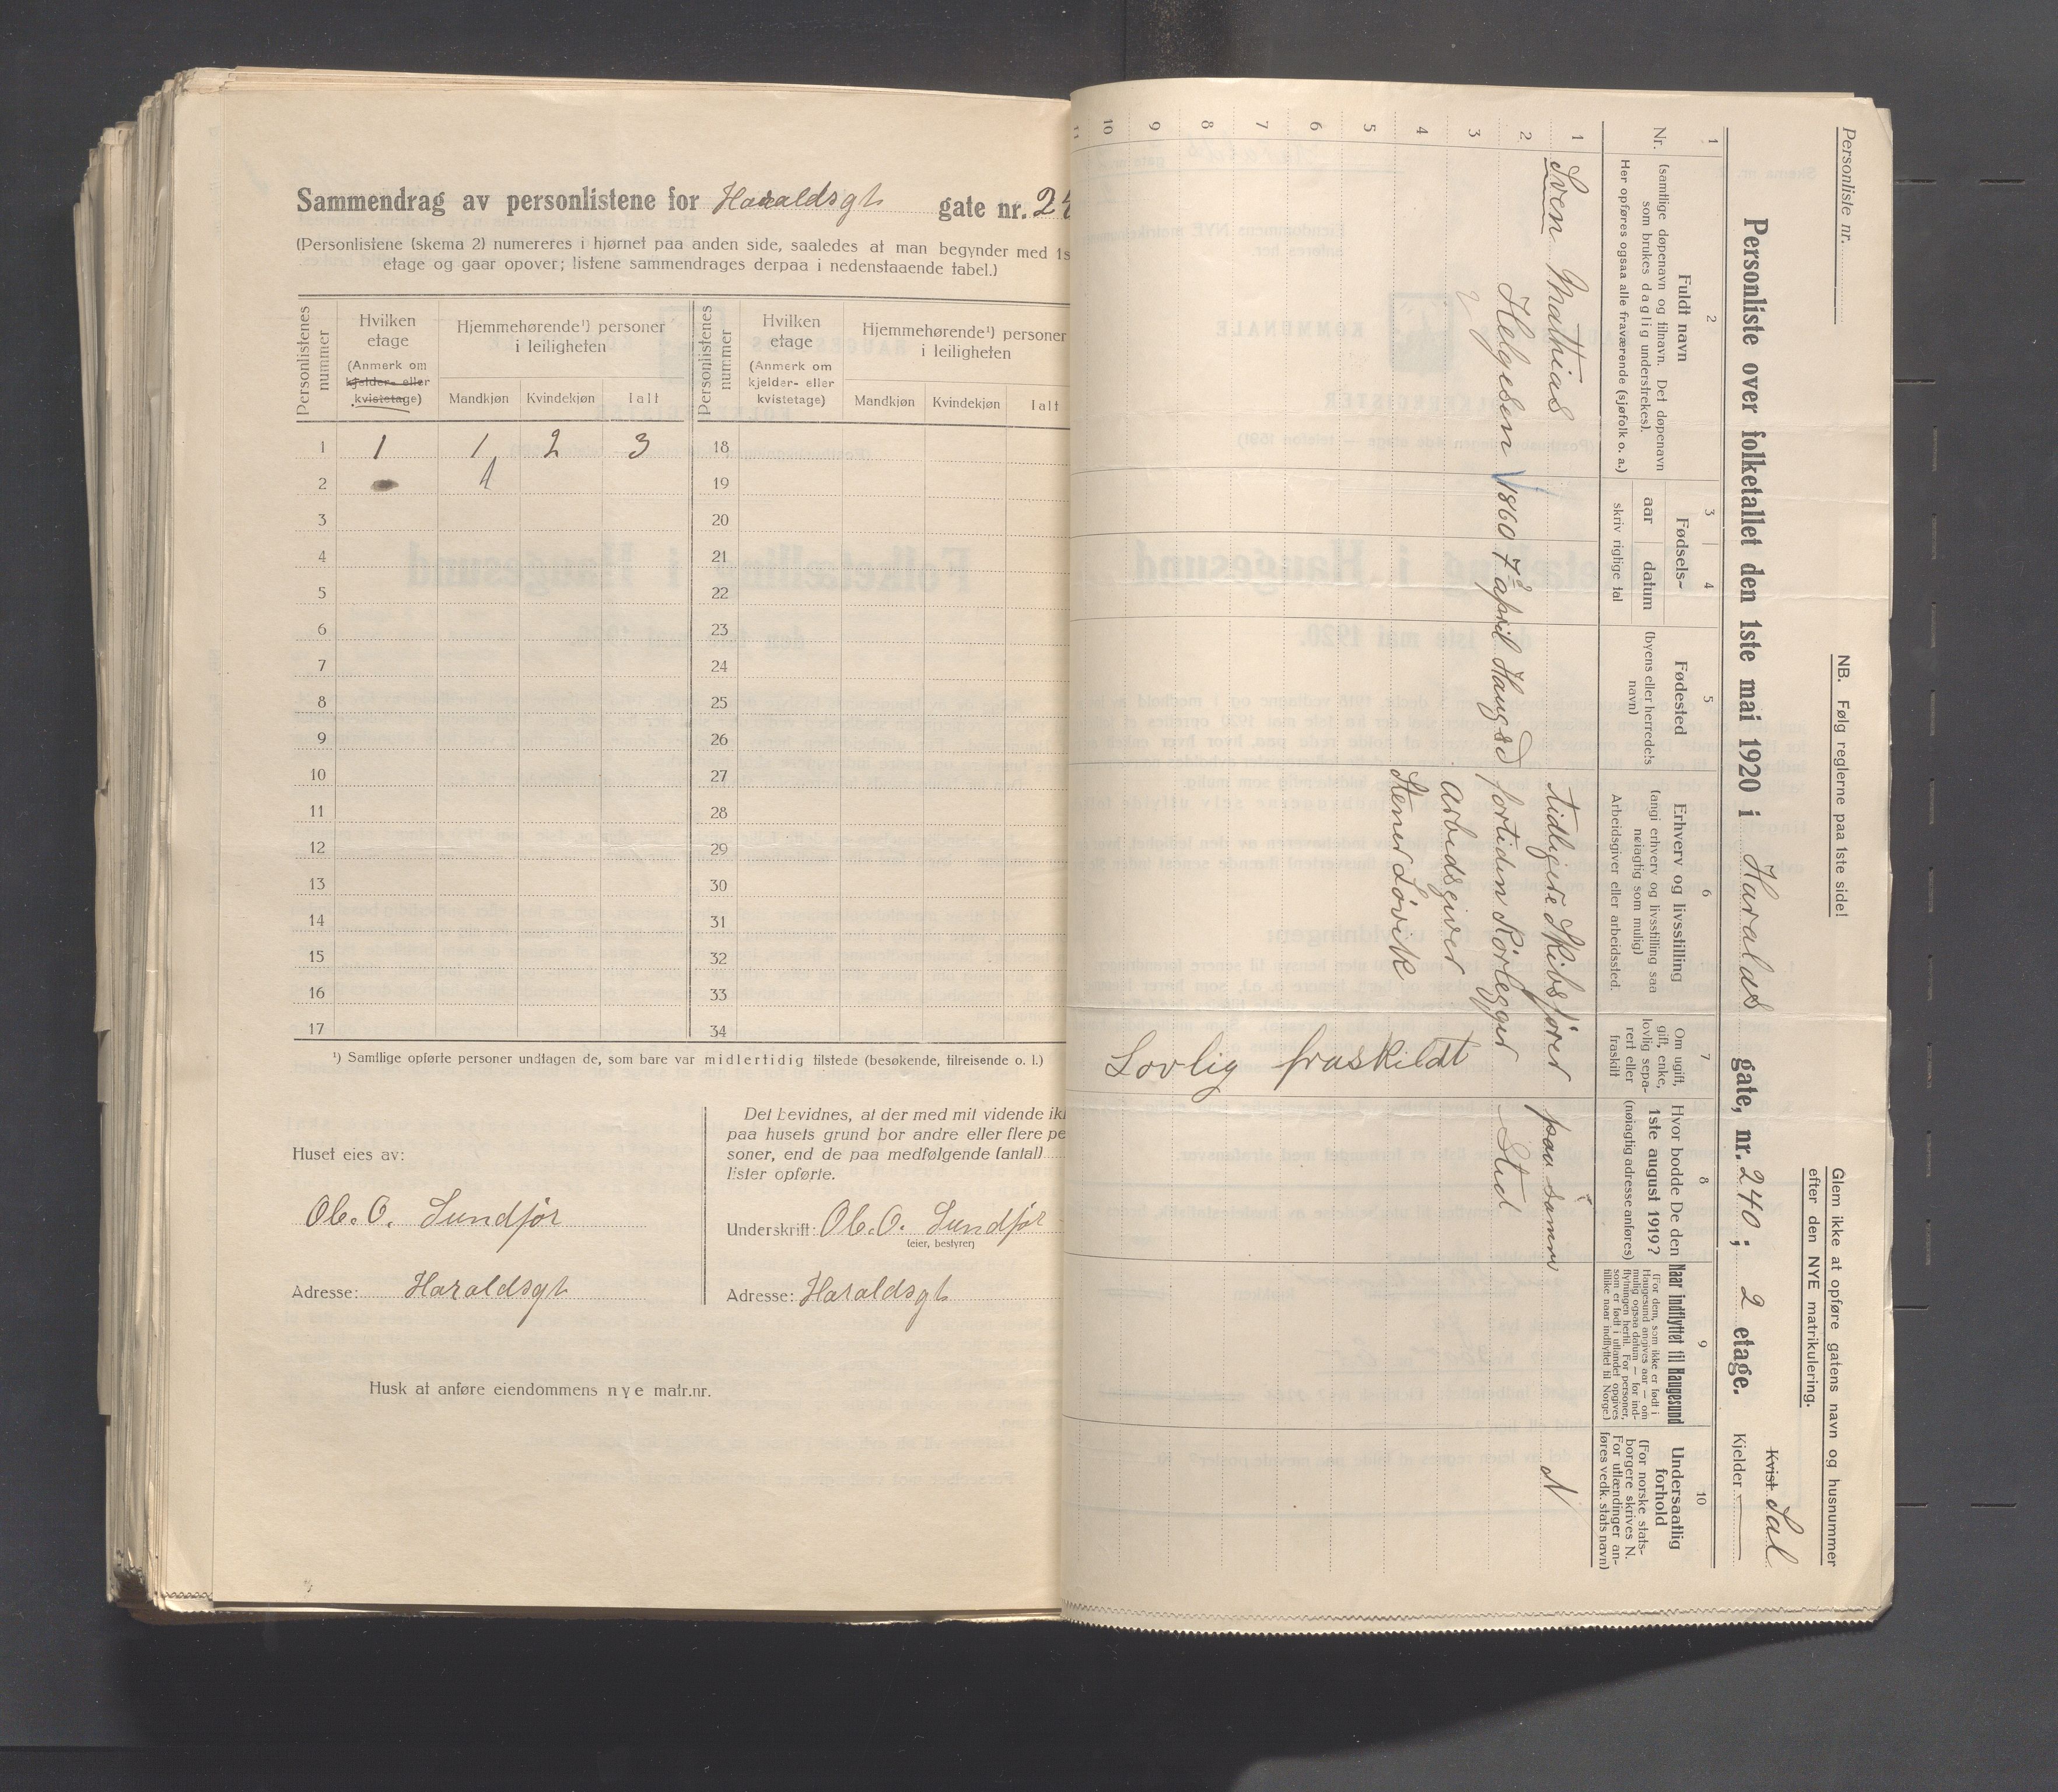 Sammendrag av personlistene for Haraldsgt gate nr. 24
(Personlistene (skema 2) numereres i hjørnet paa anden side, saaledes at man begynder med 1s
etage og gaar opover; listene sammendrages derpaa i nedenstaaende tabel.)
Personlistenes nummer
Hvilken etage (Anmerk om kjelder- eller kvistetage)
Hjemmehørende¹) personer i leiligheten
Mandkjøn Kvindekjøn Ialt
Personlistenes nummer
Hvilken etage (Anmerk om kjelder- eller kvistetage)
Hjemmehørende¹) personer i leiligheten
Mandkjøn Kvindekjøn Ialt
1 1 1 2 3 18
2 1 19
3 20
4 21
5 22
6 23
7 24
8 25
9 26
10 27
11 28
12 29
13 30
14 31
15 32
16 33
17 34
¹) Samtlige opførte personer undtagen de, som bare var midlertidig tilstede (besøkende, tilreisende o. l.)
Huset eies av:
Ob. O. Sundfør
Adresse: Haraldsgt
Det bevidnes, at der med mit vidende ik
paa husets grund bor andre eller flere pe
soner, end de paa medfølgende (antal)
lister opførte.
Underskrift: Ob. O. Sundfør
(eier, bestyrer)
Adresse: Haraldsgt
Husk at anføre eiendommens nye matr.nr.
Personliste nr.
NB. Følg reglerne paa 1ste side!
Glem ikke at opføre gatens navn og husnummer
efter den NYE matrikulering.
Personliste over folketallet den 1ste mai 1920 i Haralds gate, nr. 240; 2 etage.
Kvist Sal
Kjelder
1 2 3 4 5 6 7 8 9 10
Nr.
Fuldt navn
(samtlige døpenavn og tilnavn. Det døpenavn
som brukes daglig understrekes).
Her opføres ogsaa alle fraværende (sjøfolk o. a.)
Fødsels-
aar datum
skriv rigtige tal
Fødested
(byens eller herredets
navn)
Erhverv og livsstilling
(angi erhverv og livsstilling saa
nøiagtig som mulig)
Arbeidsgiver eller arbeidssted.
Om ugift,
gift, enke,
lovlig sepa-
rert eller
fraskilt
Hvor bodde De den
1ste august 1919?
(nøiagtig adresse anføres)
Naar indflyttet til Haugesund
(For dem, som ikke er født i
Haugesund angives aar — om
mulig ogsaa datum — for ind-
flytningen hertil. For personer,
som er født i utlandet opgives
tillike naar indflyttet til Norge.)
Undersaatlig
forhold
(For norske stats-
borgere skrives N.
For utlændinger an-
føres vedk. stats navn)
1 Sven Mathias tidligere Skibsfører paa samme N
2 Helgesen 1860 7de april Haugsd fortiden Rörlegger Sted
3 arbeidsgiver Lovlig fraskildt
4 Stener Løvik
5
6
7
8
9
10
11